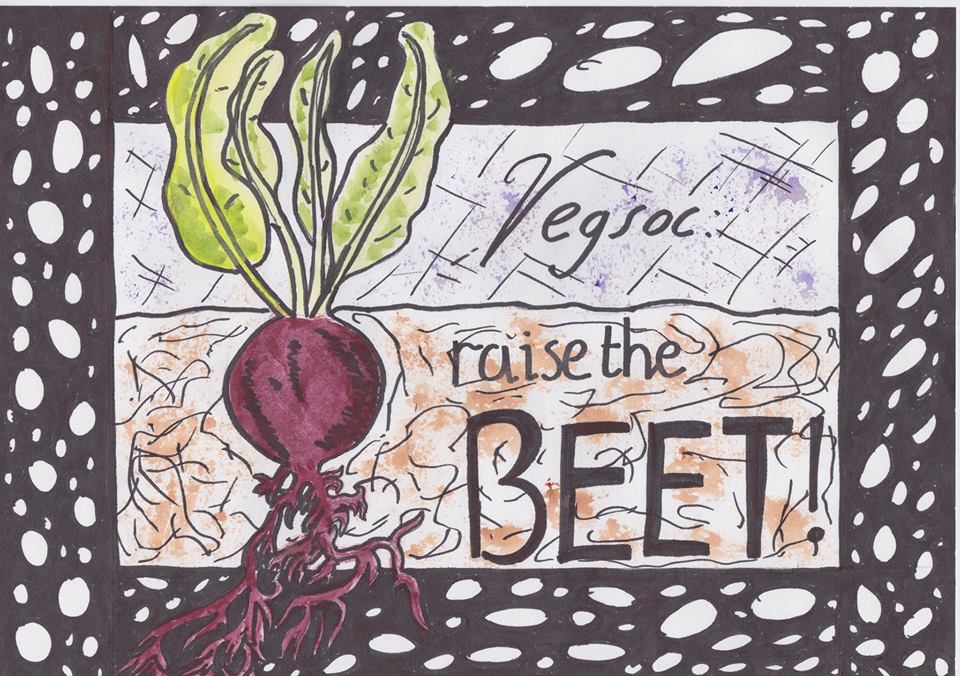 Vegsoc:
raise the
BEET!